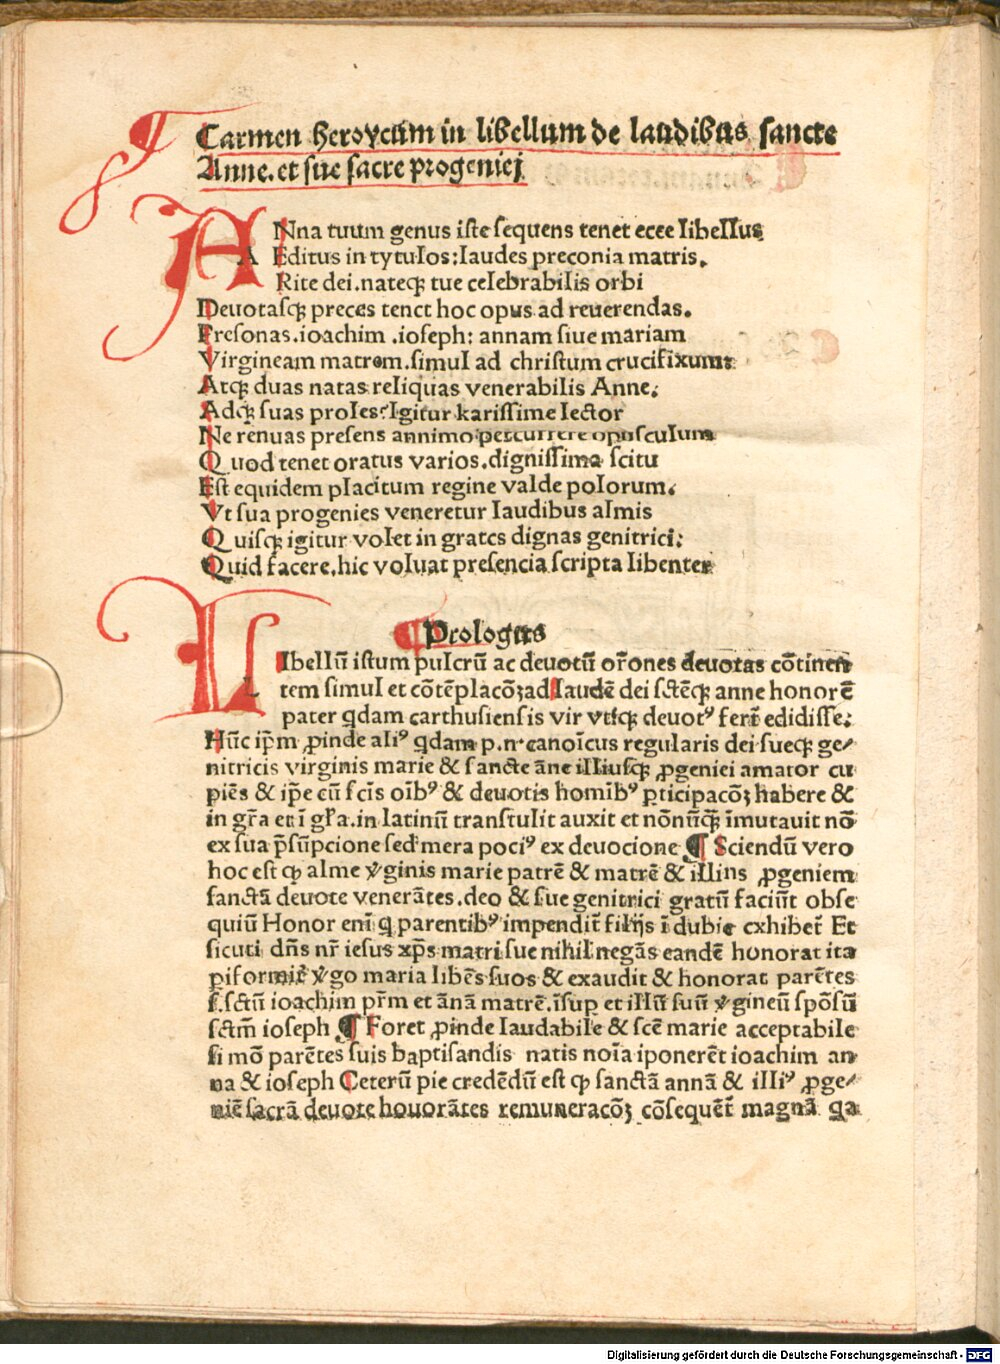 Carmen heroycum in libellum de laudibus sancte
Anne. et sue sacre progeniei
ANna tuum genus iste sequens tenet ecce libellus
Editus in tytulos: laudes preconia matris.
Rite dei. nateqꝫ tue celebrabilis orbi
Deuotasqꝫ preces tenet hoc opus ad reuerendas.
Presonas. ioachim .ioseph: annam siue mariam
Virgineam matrem. simul ad christum crucifixum:
Atqꝫ duas natas reliquas venerabilis Anne:
Adqꝫ suas proles: Igitur karissime lector
Ne renuas presens annimo percurrere opusculum
Quod tenet oratus varios. dignissima scitu
Est equidem placitum regine valde polorum.
Vt sua progenies veneretur laudibus almis
Quisqꝫ igitur volet in grates dignas genitrici:
Quid facere. hic voluat presencia scripta libenter
¶ Prologus
LIbellū istum pulcrū ac deuotū or̄ones deuotas cōtinen
tem simul et cōtēplacōꝫ ad laudē dei sctēqꝫ anne honorē
pater qdam carthusiensis vir vtiqꝫ deuotꝰ fert̄ edidisse:
Hūc ip̄m ꝓinde aliꝰ qdam p.n. canoīcus regularis dei sueqꝫ ge⸗
nitricis virginis marie & sancte āne illiusqꝫ ꝓgeniei amator cu
piēs & ip̄e cū sc̄is oībꝰ & deuotis homībꝰ ꝑticipacōꝫ habere &
in gr̄a et ī gl̄a. in latinū transtulit auxit et nōnūqꝫ īmutauit nō
ex sua p̄sūpcione sed mera pociꝰ ex deuocione ¶ Sciendū vero
hoc est ꝙ alme v̄ginis marie patrē & matrē & illins ꝓgeniem
sanctā deuote venerātes. deo & sue genitrici gratū faciūt obse
quiū Honor enī q parentibꝰ impendit̄ filijs ī dubie exhibet̄ Et
sicuti dn̄s nr̄ iesus xp̄s matri sue nihil negās eandē honorat ita
piformiē v̄go maria libēs suos & exaudit & honorat parētes
s. sctū ioachim pr̄m et ānā matrē. īsuꝑ et illū suū v̄gineū spōsū
sctm̄ ioseph ¶ Foret ꝓinde laudabile & scē marie acceptabile
si mō parētes suis baptisandis natis noīa iponerēt ioachim an
na & ioseph Ceterū pie credēdū est ꝙ sanctā annā & illiꝰ ꝓge⸗
niē sacrā deuote honorātes remuneracōꝫ cōsequēt̄ magnā qa